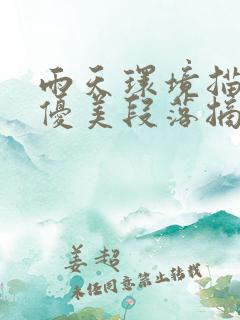 雨天环境描
优美段落摘
姜超
未经同意禁止转载